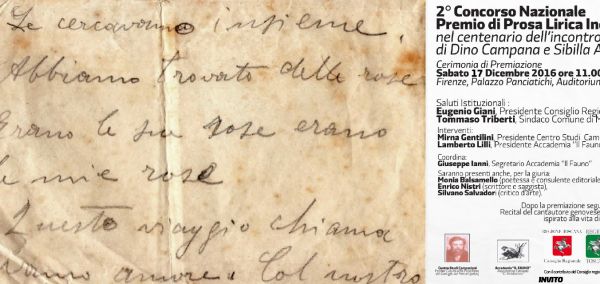 Le cercavamo insieme
Abbiamo trovato delle rose
Erano le sue rose erano
le mie rose
Questo viaggio chiama
vamo amore. Col nostro
2° Concorso Nazionale
Premio di Prosa Lirica Ine
nel centenario dell'incontro
di Dino Campana e Sibilla A
Cerimonia di Premiazione
Sabato 17 Dicembre 2016 ore 11.00
Firenze, Palazzo Panciatichi, Auditorium
Saluti Istituzionali :
Eugenio Giani, Presidente Consiglio Regi
Tommaso Triberti, Sindaco Comune di M
Interventi:
Mirna Gentilini, Presidente Centro Studi Cam
Lamberto Lilli, Presidente Accademia "Il Fauno"
Coordina:
Giuseppe Ianni, Segretario Accademia "Il Fauno"
Saranno presenti anche, per la giuria:
Monia Balsamello (poetessa e consulente editoriale
Enrico Nistri (scrittore e saggista),
Silvano Salvadori (critico d'arte).
Dopo la premiazione segu
Recital del cantautore genovese
ispirato alla vita di
REGIONE TOSCANA
Consiglio Regionale
Centro Studi Campaniani
Accademia "IL FAUNO"
Con il contributo del Consiglio regio
INVITO